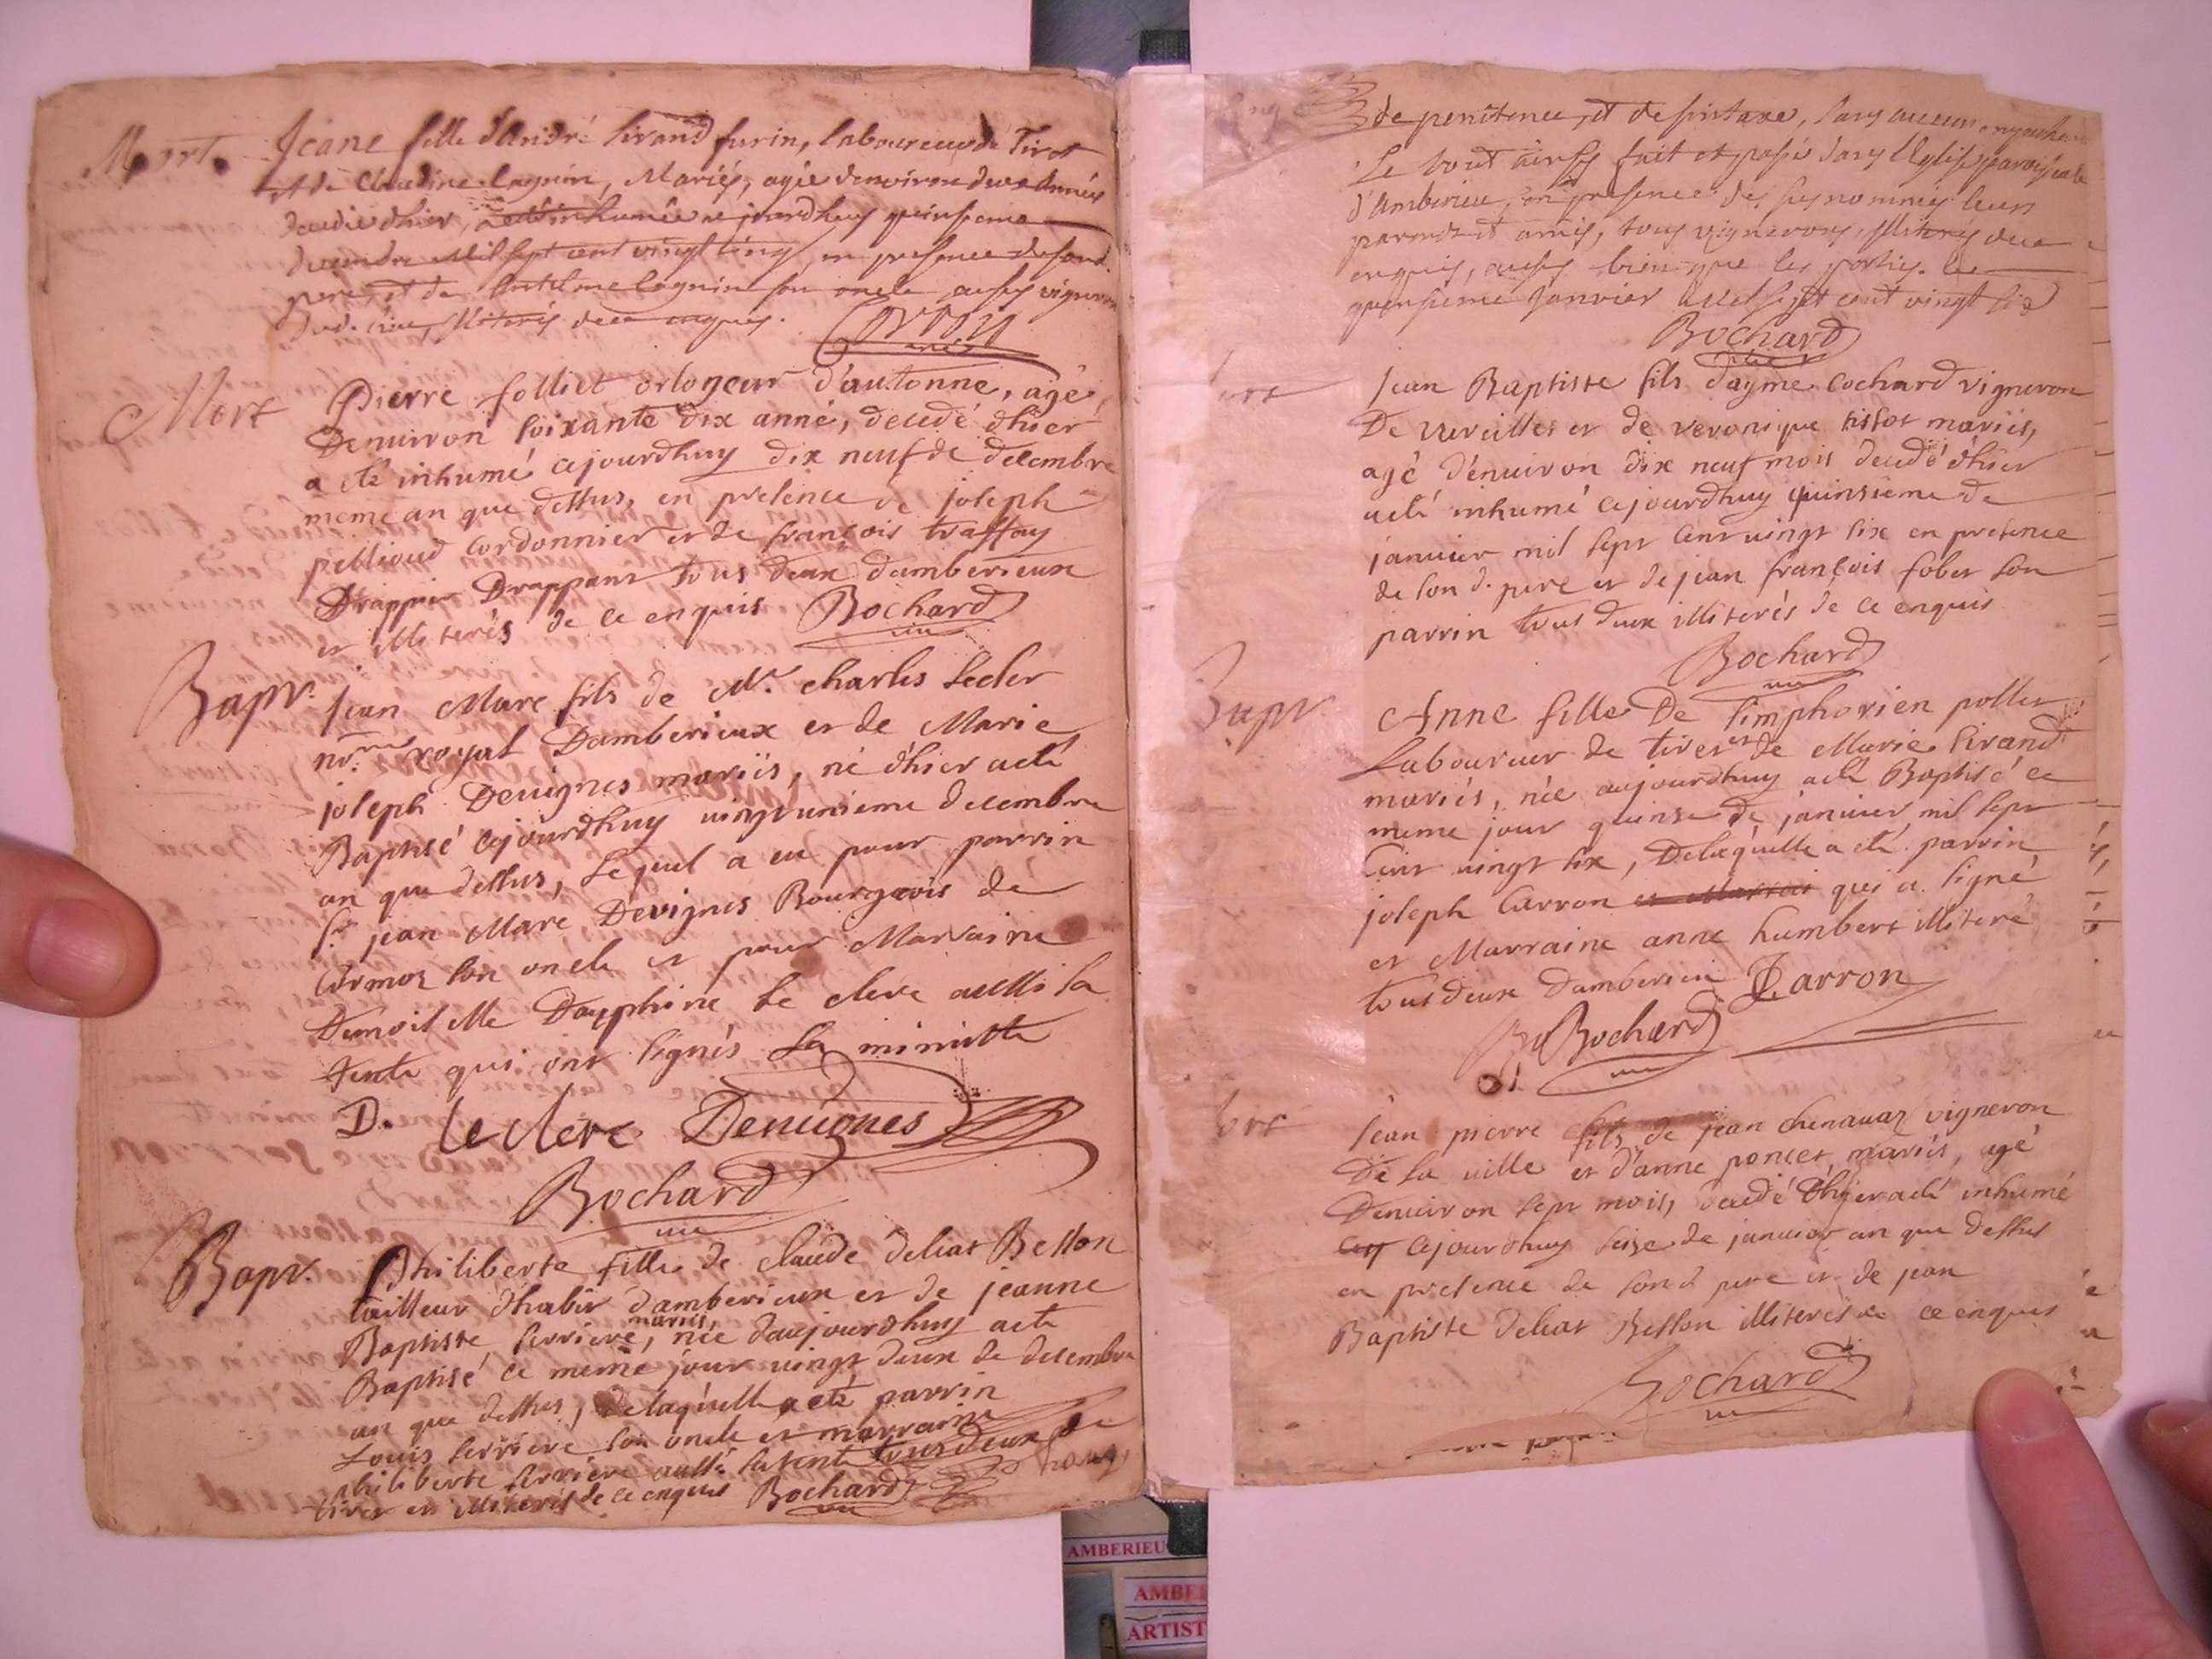 Mort. Jeane fille d'André sirand furin, laboureur de Tiret
et de Claudine lagnin, Mariés, agée denviron deux années
decedée dhier, a esté inhumée ce jourdhuy quinsieme
decembre Mil sept cent vingt cinq, en presence de sond.
pere, et de Antelme lagnin son oncle aussy vigneron
dud. lieu, illiterés de ce enquis.
Mort Pierre folliet orlogeur d'autonne, agé
Denuiron soixante dix anné, decedé d'hier
a eté inhumé cejourdhuy dix neuf de decembre
meme an que dessus, en presence de joseph
pellioud cordonnier et de françois traffay
Drappier Drappant tous deux damberieux
et illiterés de ce enquis Bochard
Bapt. jean Marc fils de Mr. charles lecler
nre. royal Damberieux et de Marie
joseph Deuignes mariés, né d'hier a eté
Baptisé cejourdhuy uingt unieme decembre
an que dessus, lequel a eu pour parrin
sr. jean Marc Devignes Bourgeois de
Cormoz son oncle et pour Marraine
Demoiselle Dauphine le clerc aussi sa
tente qui ont signés la minutte
D. leclerc Deuignes
Bochard
Bapt. Philiberte fille de claude deliat Bellon
tailleur dhabit damberieux et de jeanne
Baptiste serriere, mariés, née daujourdhuy a eté
Baptisé ce meme jour uingt deux de decembre
an que dessus, delaquelle a eté parrin
Louis serriere son oncle et marraine
philiberte serriere aussi sa tente tous deux de
tiret et illiterés de ce enquis Bochard
de penitence, et de sans aucun
Le tout ainsy fait et passé dans l'Eglise paroissiale
d'Amberieu, en presence des susnommés leurs
parents et amis, tous vignerons, illiterés de ce
enquis, aussy bien que les parties. le
quinsieme Janvier Mil sept cent vingt six
Bochard
jean Baptiste fils d'aymé cochard vigneron
De vareilles et de veronique tissot mariés,
agé d'enuiron dix neuf mois decedé d'hier
a eté inhumé cejourdhuy quinsieme de
januier mil sept cent uingt six en presence
de son d. pere et de jean françois fobet son
parrin tous deux illiterés de ce enquis
Bochard
Bapt Anne fille De simphorien pollet
Laboureur de tiret et de Marie sirand
mariés, née aujourdhuy a eté Baptisé ce
meme jour quinse de januier mil sept
cent uingt six, Delaquelle a eté parrin
joseph Carron qui a signé
et Marraine anne humbert illiteré
tous deux damberieu J Carron
Bochard
jean pierre fils de jean chenauaz vigneron
De la uille et d'anne poncet, mariés, agé
Denuiron sept mois, decedé dhyer a eté inhumé
cejourdhuy seize de januier an que dessus
en presence de son d pere et de jean
Baptiste deliat Bellon illiterés de ce enquis
Bochard
AMBERIEU
AMBE
ARTIST